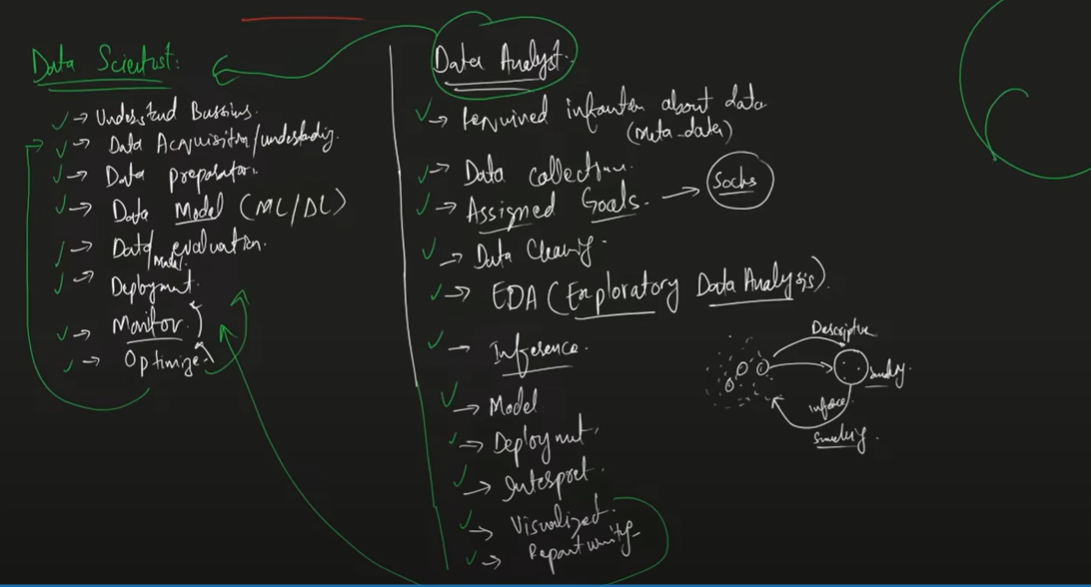 Data Scientist:
→ Understand Bussins.
→ Data Acquisition/understanding.
→ Data preparation.
→ Data Model (ML/DL)
→ Data/Model evaluation.
→ Deployment.
→ Monitor
→ Optimize
Data Analyst:
→ Required about data
(Meta-data)
→ Data collection.
→ Assigned Goals. → Socks
→ Data Cleaning.
→ EDA (Exploratory Data Analysis).
→ Inference.
→ Model
→ Deployment.
→ Interpret.
→ Visualized.
→ Report writing
Descriptive